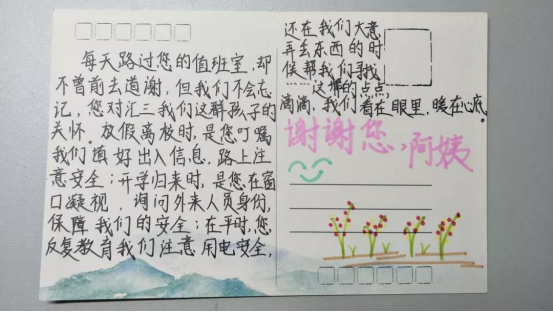 每天路过您的值班室,却
不曾前去道谢,但我们不会忘
记,您对汇三我们这群孩子的
关怀。放假离校时,是您叮嘱
我们填好出入信息,路上注
意安全;开学归来时,是您在窗
口凝视,询问外来人员身份,
保障我们的安全;在平时,您
反复教育我们注意用电安全,
还在我们大意
弄丢东西的时
候帮我们寻找
……这样的点点
滴滴,我们看在眼里,暖在心底。
谢谢您,阿姨